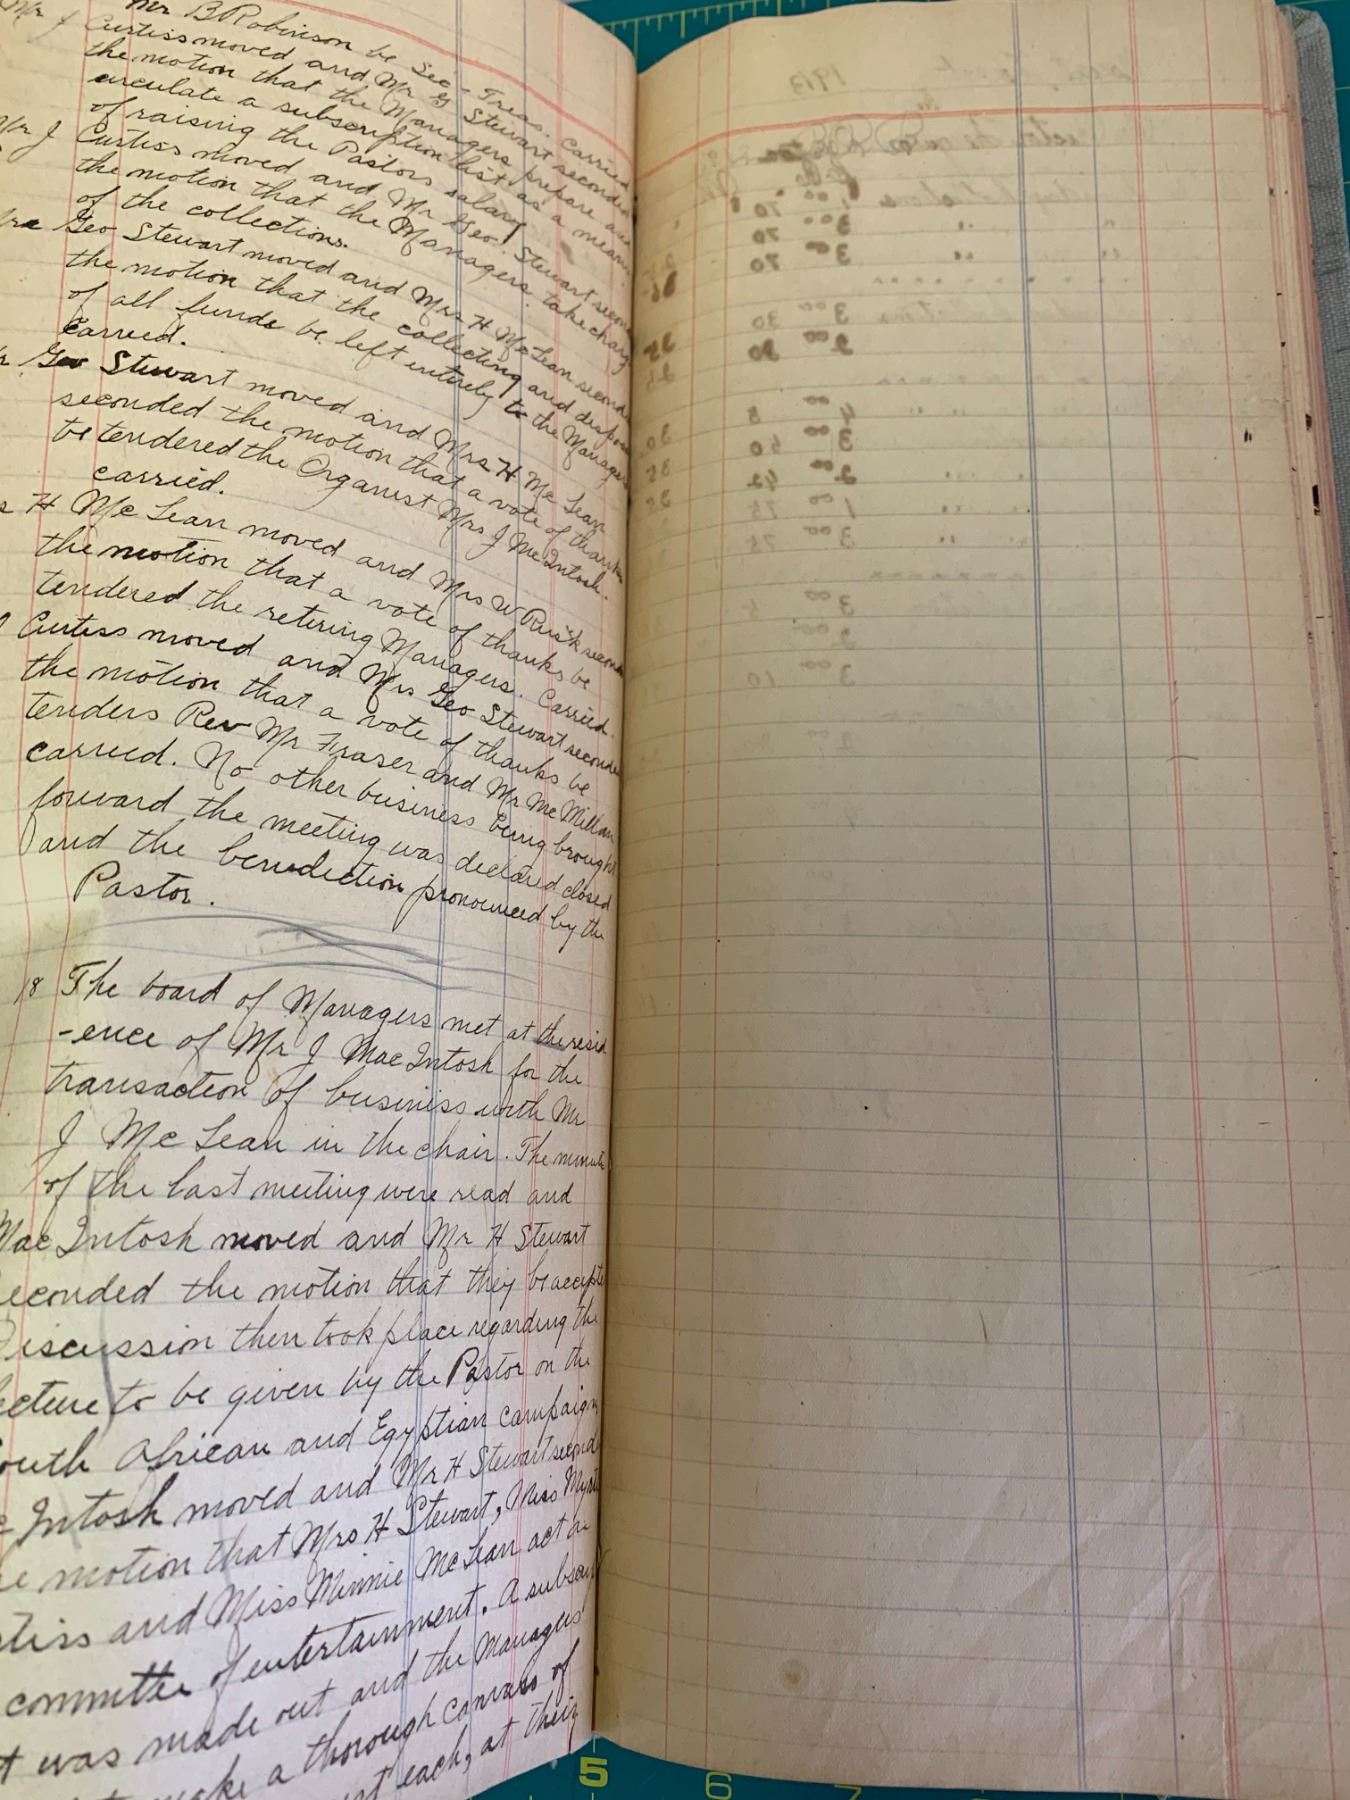 Mr B Robinson be Sec-Treas. Carried
Mr J Curtiss moved and Mr G Stewart seconded
the motion that the Managers prepare and
circulate a subscription list as a means
of raising the Pastors salary
Mr J Curtiss moved and Mr Geo. Stewart secon
the motion that the Managers take charg
of the collections.
Geo Stewart moved and Mrs H McLean secon
the motion that the collecting and dispos
of all funds be left entirely to the Managers
Carried.
Geo Stewart moved and Mrs H Mc Lean
seconded the motion that a vote of thanks
be tendered the Organist Mrs J McIntosh.
carried.
s H Mc Lean moved and Mrs W Rusk secon
the motion that a vote of thanks be
tendered the retiring Managers. Carried.
J Curtiss moved and Mrs Geo Stewart seconde
the motion that a vote of thanks be
tenders Rev Mr Fraser and Mr Mc Millan
carried. No other business being brought
forward the meeting was declared closed
and the benediction pronounced by the
Pastor.
18 The board of Managers met at the resid
-ence of Mr J MacIntosh for the
transaction of business with Mr
J Mc Lean in the chair. The minute
of the last meeting were read and
MacIntosh moved and Mr H Stewart
seconded the motion that they be accepte
Discussion then took place regarding the
lecture to be given by the Pastor on the
South African and Egyptian campaign
c Intosh moved and Mr H Stewart second
e motion that Mrs H Stewart, Miss Myrt
tiss and Miss Minnie McLean act as
committee of entertainment. A subscri
t was made out and the Managers
make a thorough canvass of
each, at their
1913
5 6 7